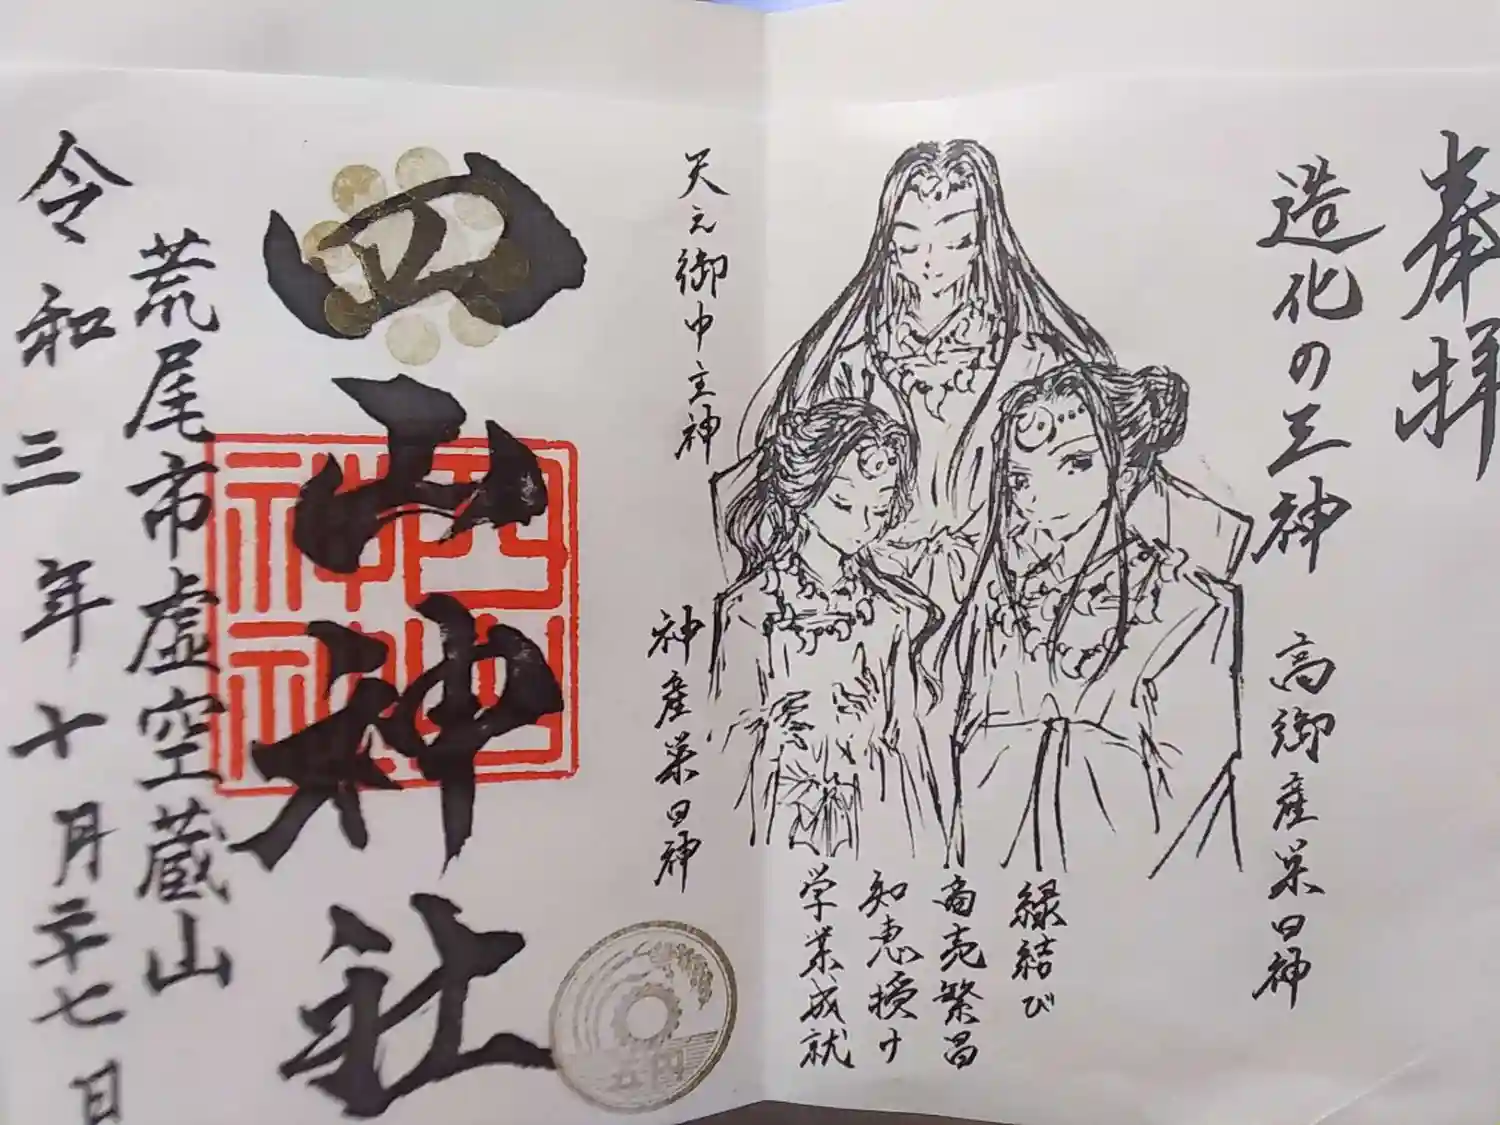 奉拝
造化の三神
高御産巣日神
縁結び
商売繁昌
知恵授け
学業成就
天之御中主神
神産巣日神
四山神社
四山
神社
五円
荒尾市虚空蔵山
令和三年十月二十七日